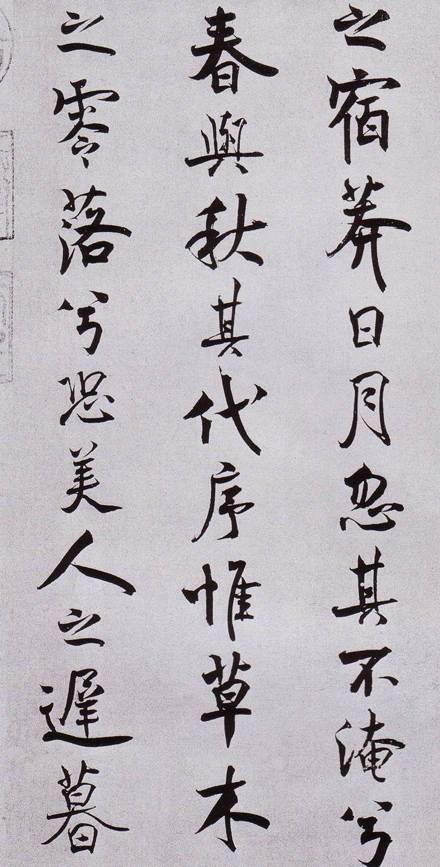 之宿莽日月忽其不淹兮
春與秋其代序惟草木
之零落兮恐美人之遲暮